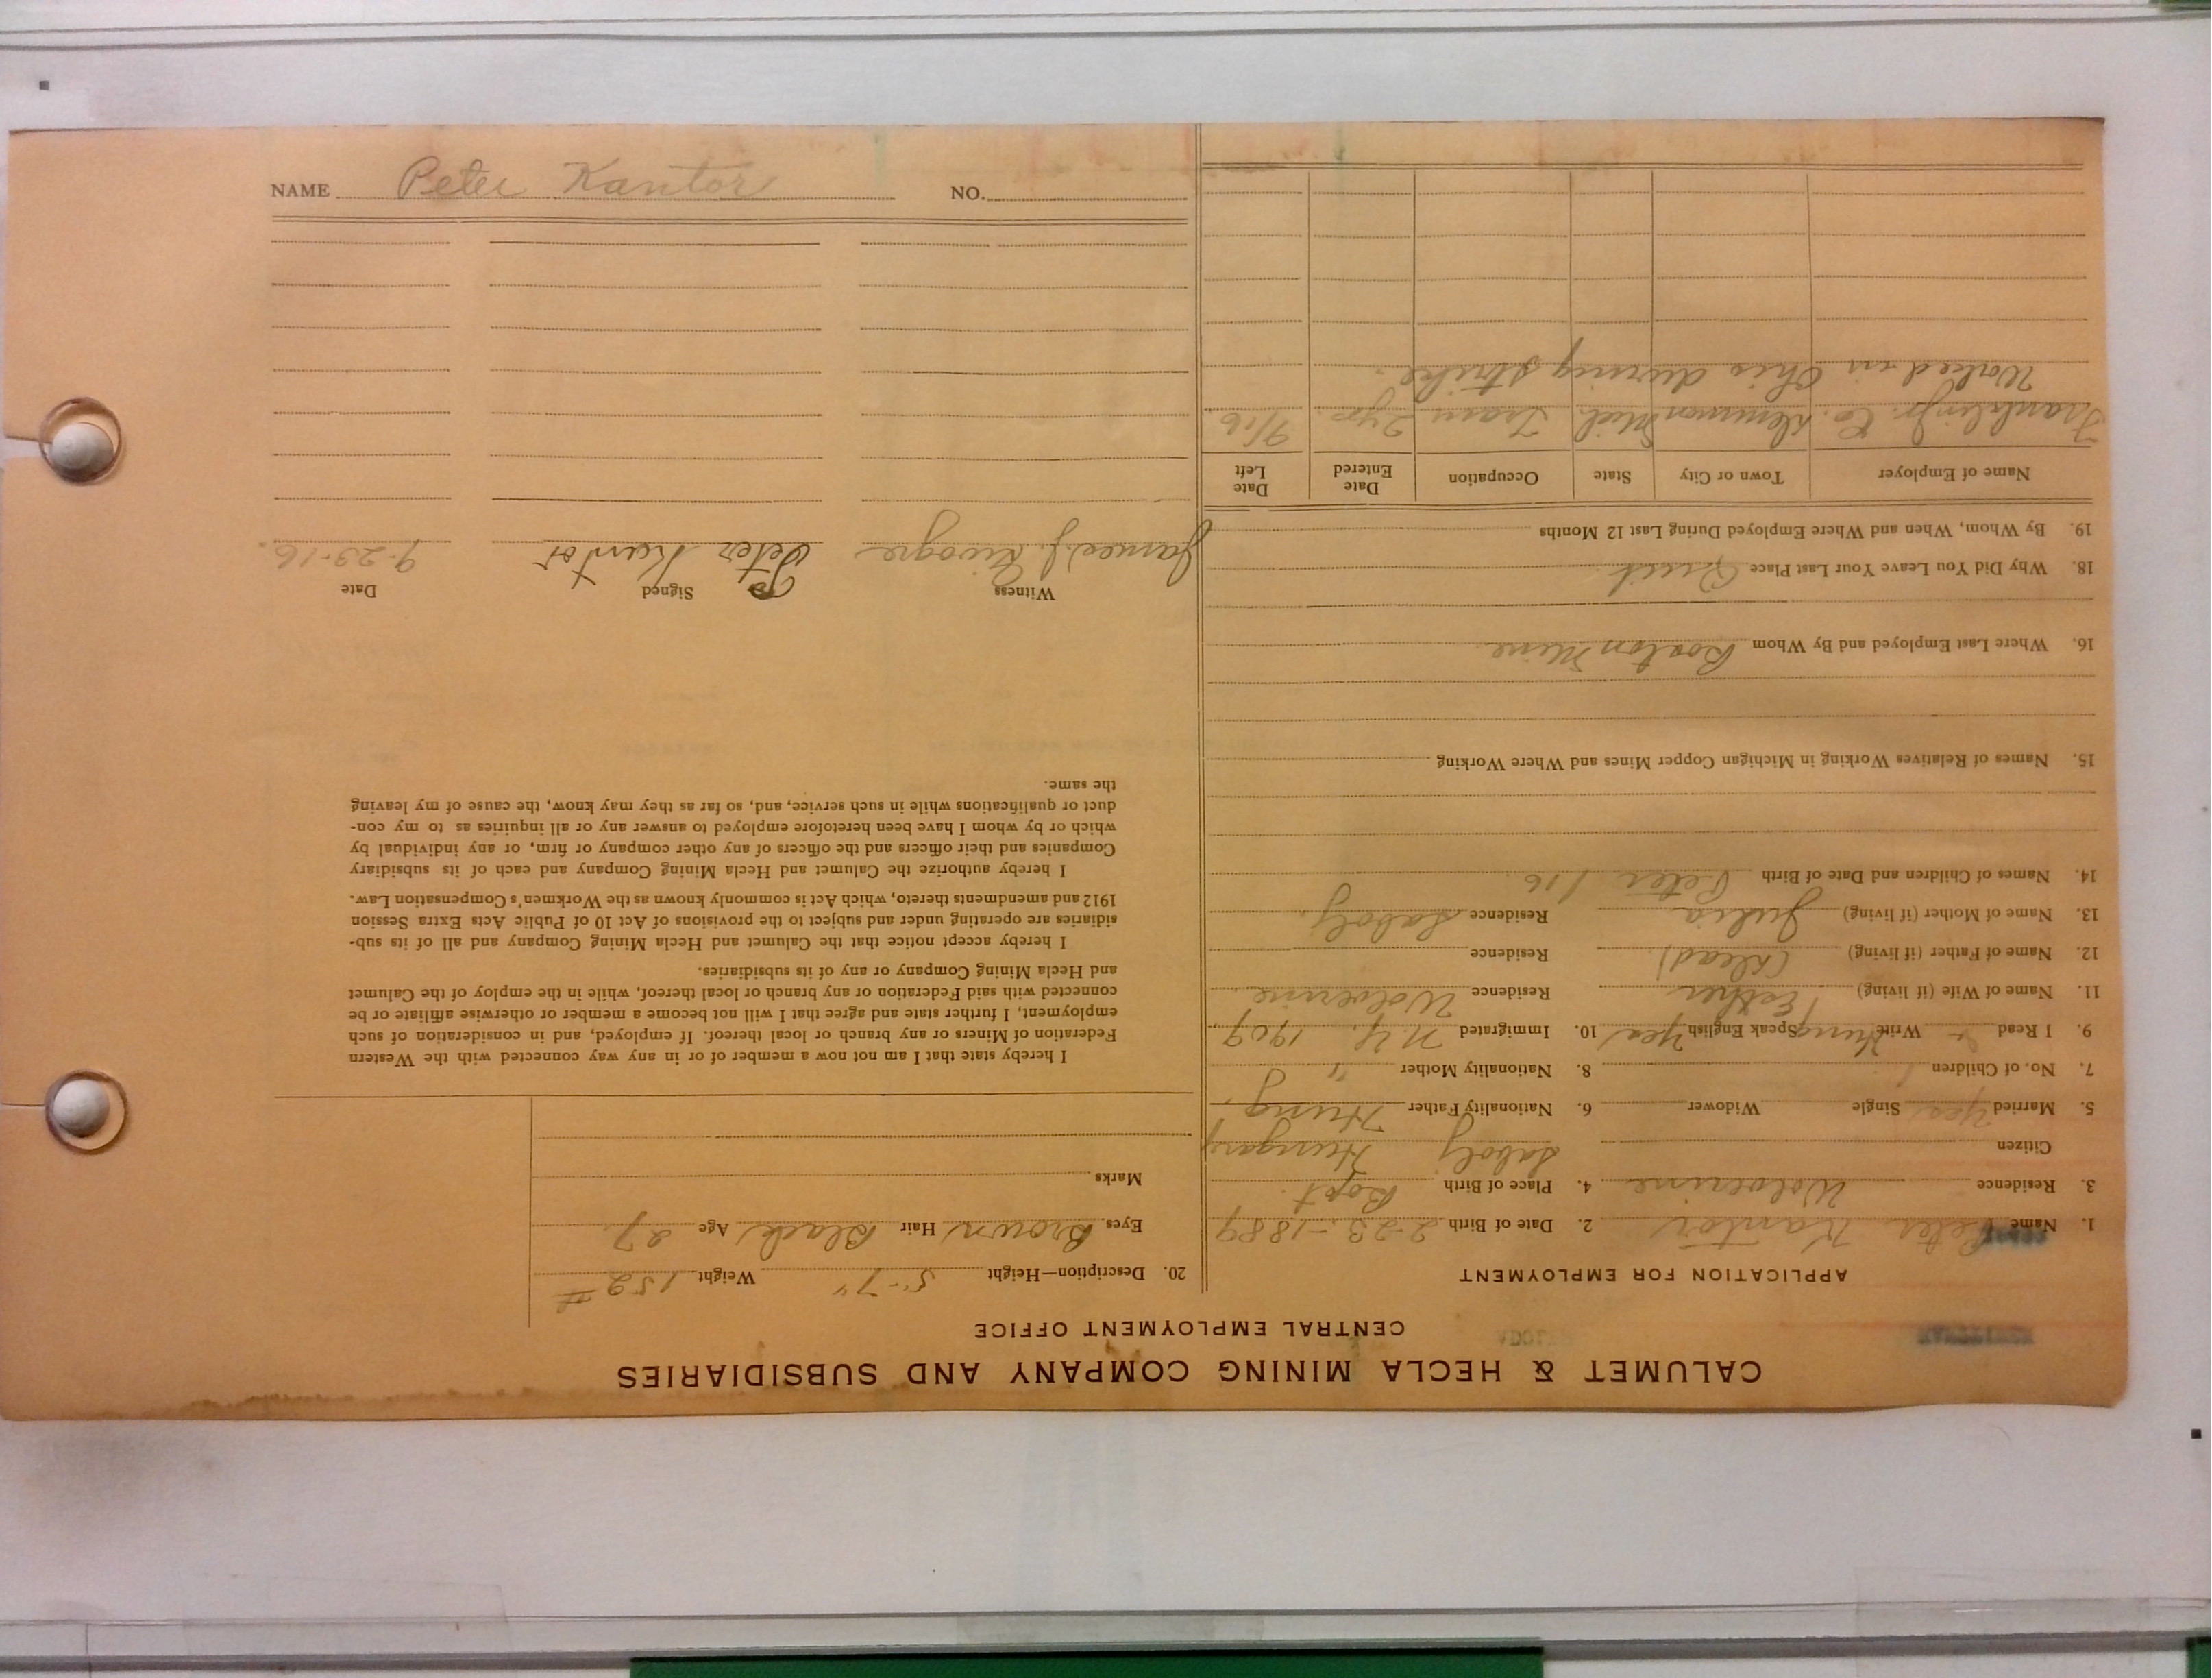 NAME Peter Kantor NO.
CALUMET & HECLA MINING COMPANY AND SUBSIDIARIES
CENTRAL EMPLOYMENT OFFICE
APPLICATION FOR EMPLOYMENT
1. Name Peter Kantor 2. Date of Birth 2-23-1889
3. Residence Wolverine 4. Place of Birth Bopt.
Citizen Saboly Hungary
5. Married Yes Single Widower 6. Nationality Father Hung.
7. No. of Children 1 8. Nationality Mother "
9. I Read & Write Hung Speak English Yes 10. Immigrated N.Y. 1909
11. Name of Wife (if living) Esther Residence Wolverine
12. Name of Father (if living) (Dead) Residence
13. Name of Mother (if living) Julia Residence Saboly
14. Names of Children and Date of Birth Peter 1/16
15. Names of Relatives Working in Michigan Copper Mines and Where Working
16. Where Last Employed and By Whom Boston Mine
18. Why Did You Leave Your Last Place Quit
19. By Whom, When and Where Employed During Last 12 Months
Name of Employer Town or City State Occupation Date Entered Date Left
Franklin Jr. Co. Demmon Mich Tram 2 yrs. 9/16
Worked in Ohio during strike.
20. Description—Height 5-7" Weight 152#
Eyes Brown Hair Black Age 27
Marks
I hereby state that I am not now a member of or in any way connected with the Western
Federation of Miners or any branch or local thereof. If employed, and in consideration of such
employment, I further state and agree that I will not become a member or otherwise affiliate or be
connected with said Federation or any branch or local thereof, while in the employ of the Calumet
and Hecla Mining Company or any of its subsidiaries.
I hereby accept notice that the Calumet and Hecla Mining Company and all of its sub-
sidiaries are operating under and subject to the provisions of Act 10 of Public Acts Extra Session
1912 and amendments thereto, which Act is commonly known as the Workmen's Compensation Law.
I hereby authorize the Calumet and Hecla Mining Company and each of its subsidiary
Companies and their officers and the officers of any other company or firm, or any individual by
which or by whom I have been heretofore employed to answer any or all inquiries as to my con-
duct or qualifications while in such service, and, so far as they may know, the cause of my leaving
the same.
Witness Signed Date
James J. Peter Kantor 9-23-16.